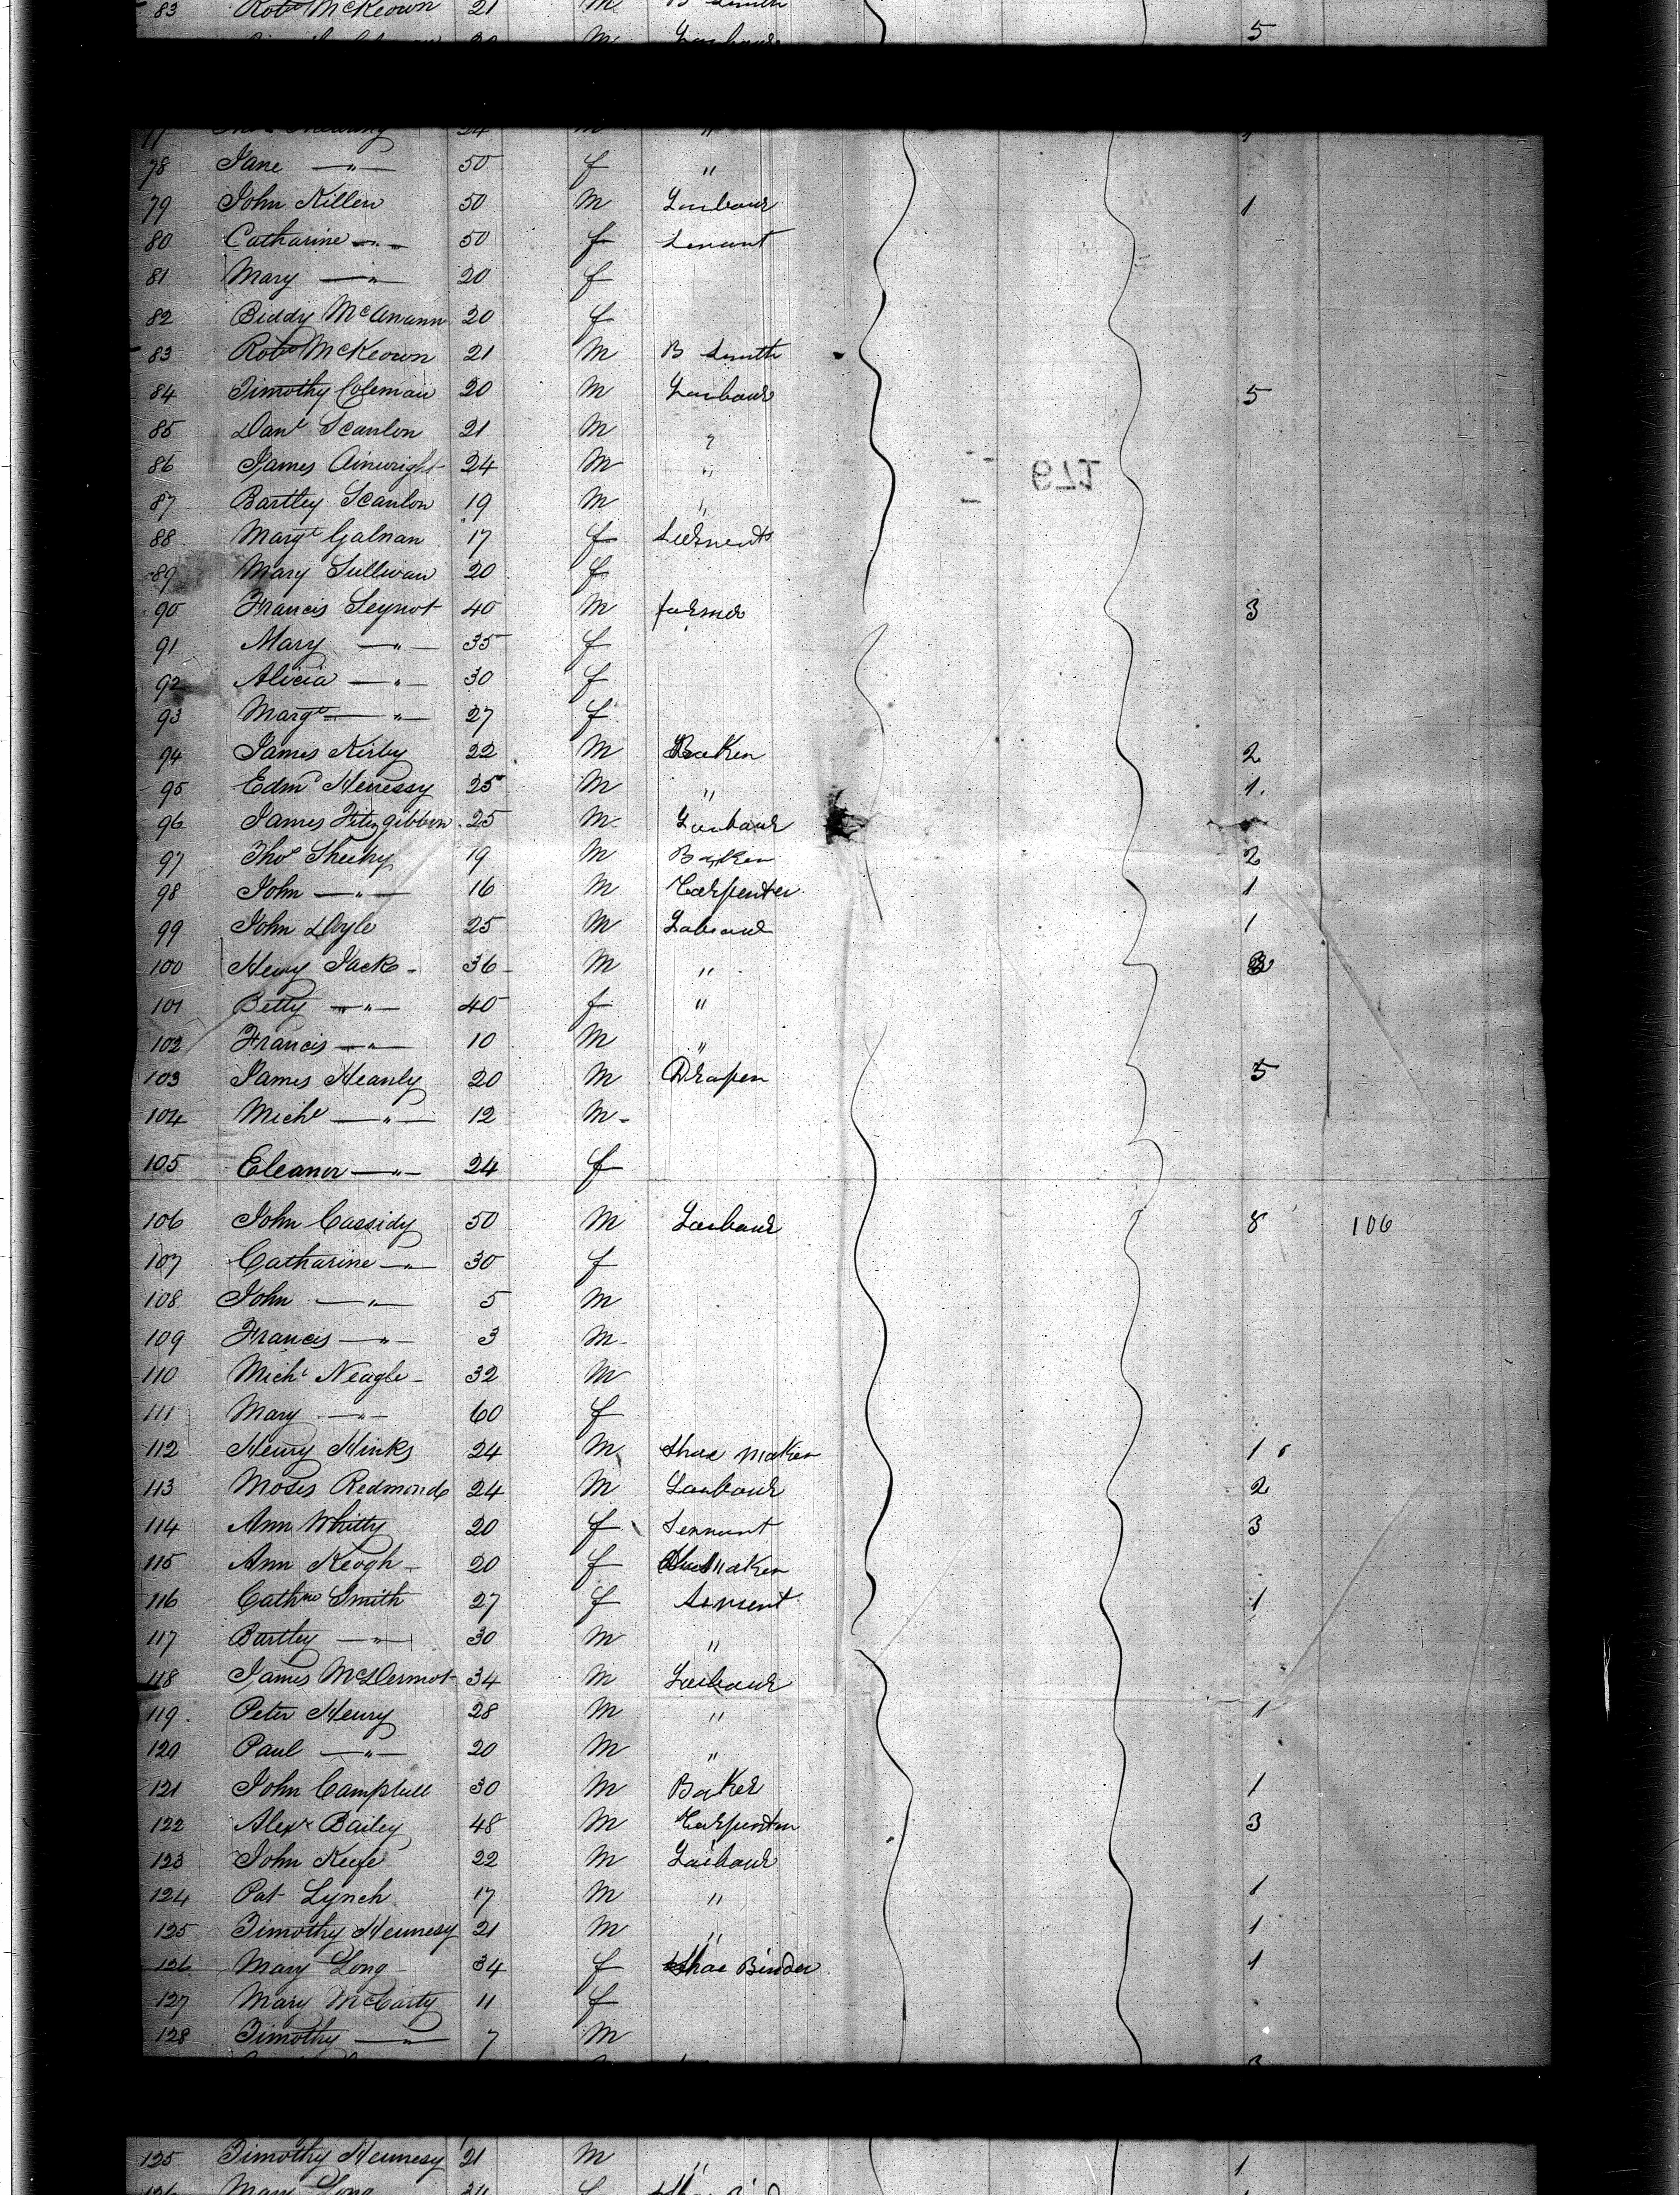 83 Robt McKeown 21 M B Smith
5
78 Jane —"— 50 f "
79 John Killen 50 M Laibour 1
80 Catharine —"— 50 f Servant
81 Mary —"— 20 f
82 Biddy McAnann 20 f
83 Robt McKeown 21 M B Smith
84 Timothy Coleman 20 M Laibour 5
85 Danl Scanlon 21 M "
86 James Ainwright 24 M "
87 Bartley Scanlon 19 M "
88 Margt Galnan 17 f
89 Mary Sullivan 20 f
90 Francis Seynot 40 M farmer 3
91 Mary —"— 35 f
92 Alicia —"— 30 f
93 Margt —"— 27 f
94 James Kirby 22 M Baker 2
95 Edmd Henessy 25 M " 1
96 James Fitzgibbon 25 M Laibour
97 Thos Sheehy 19 M Baker 2
98 John —"— 16 M Carpenter 1
99 John Doyle 25 M Labour 1
100 Henry Jack 36 M "
101 Betty —"— 40 f "
102 Francis —"— 10 M "
103 James Heanly 20 M Draper 5
104 Michl —"— 12 M
105 Eleanor —"— 24 f
106 John Cassidy 50 M Laibour 8 106
107 Catharine —"— 30 f
108 John —"— 5 M
109 Francis —"— 3 M
110 Michl Neagle 32 M
111 Mary —"— 60 f
112 Henry Hinks 24 M Shoe Maker 1
113 Moses Redmond 24 M Laibour 2
114 Ann Whitty 20 f Servant 3
115 Ann Keogh 20 f
116 Cathne Smith 27 f Servent 1
117 Bartley —"— 30 M "
118 James McDermot 34 M Laibour
119 Peter Henry 28 M " 1
120 Paul —"— 20 M "
121 John Campbell 30 M Baker 1
122 Alexr Bailey 48 M Carpenter 3
123 John Keefe 22 M Laibour
124 Pat Lynch 17 M " 1
125 Timothy Hennesy 21 M " 1
126 Mary Long 34 f Shoe Binder 1
127 Mary McCarty 11 f
128 Timothy —"— 7 M
3
125 Timothy Hennesy 21 M " 1
126 Mary Long 34 f